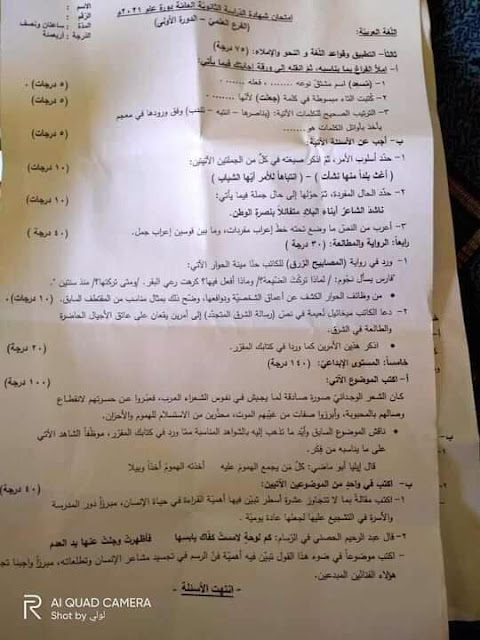 امتحان شهادة الدراسة الثانوية العامة دورة عام ٢٠٢١م
(الفرع العلمي – الدورة الأولى)
الاسم :
الرقم :
المدة : ساعتان ونصف
الدرجة : أربعمئة
اللغة العربية:
ثالثاً– التطبيق وقواعد اللغة و النحو والإملاء: (٧٥ درجة)
أ– املأ الفراغ بما يناسبه، ثم انقله إلى ورقة إجابتك فيما يأتي:
١– (مُسعِد) اسم مشتق نوعه ....... ، فعله .......
(٥ درجات)
٢– كُتبت التاء مبسوطة في كلمة (جعلت) لأنها .......
(٥ درجات)
٣– الترتيب الصحيح للكلمات الآتية: (يناصرها – انتبه – ) وفق ورودها في معجم
يأخذ بأوائل الكلمات هو .......
(٥ درجات)
ب– أجب عن الأسئلة الآتية:
١– حدّد أسلوب الأمر، ثم اذكر صيغته في كلّ من الجملتين الآتيتين:
(١٠ درجات)
( أغث بلداً منها نشأت ) – ( انتباهاً للأمر أيّها الشباب )
٢– حدّد الحال المفردة، ثم حوّلها إلى حال جملة فيما يأتي:
(١٠ درجات)
ناشدَ الشاعرُ أبناءَ البلادِ متفائلاً بنصرةِ الوطن.
٣– أعرب من النصّ ما وضع تحته خط إعراب مفردات، وما بين قوسين إعراب جمل.
(٤٠ درجة)
رابعاً: الرواية والمطالعة: (٣٠ درجة )
١– ورد في رواية (المصابيح الزرق) للكاتب حنّا مينة الحوار الآتي:
"فارس يسأل نجّوم: / لماذا تركت الضيعة؟/ وماذا أفعل فيها؟ كرهت رعي البقر. /ومتى تركتها؟/ منذ سنتين ".
• من وظائف الحوار الكشف عن أعماق الشخصيّة ودوافعها، وضّح ذلك بمثال مناسب من المقتطف السابق.
(١٠ درجات)
٢– دعا الكاتب ميخائيل نُعيمة في نصّ (رسالة الشرق المتجدّد) إلى أمرين يقعان على عاتق الأجيال الحاضرة
والطالعة في الشرق.
• اذكر هذين الأمرين كما وردا في كتابك المقرّر.
(٢٠ درجة)
خامساً: المستوى الإبداعيّ: (١٤٠ درجة)
أ– اكتب الموضوع الآتي:
(١٠٠ درجة)
كان الشعر الوجدانيّ صورة صادقة لما يجيش في نفوس الشعراء العرب، فعبّروا عن حسرتهم لانقطاع
وصالهم بالمحبوبة، وأبرزوا صفات من غيّبهم الموت، محذّرين من الاستسلام للهموم والأحزان.
• ناقش الموضوع السابق وأيّد ما تذهب إليه بالشواهد المناسبة ممّا ورد في كتابك المقرّر، موظّفاً الشاهد الآتي
على ما يناسبه من فِكَر.
قال إيليا أبو ماضي: كلُّ مَن يجمع الهمومَ عليه أخذته الهمومُ أخذاً وبيلا
ب– اكتب في واحدٍ من الموضوعين الآتيين:
(٤٠ درجة)
١– اكتب مقالة بما لا يتجاوز عشرة أسطر تبيّن فيها أهميّة القراءة في حياة الإنسان، مبرزاً دور المدرسة
والأسرة في التشجيع عليها لجعلها عادة يوميّة.
٢– قال عبد الرحيم الحصني في الرسّام: كم لوحةٍ لامستْ كفاك يابسها فأظهرتْ وجثتْ عنها يد العدم
– اكتب موضوعاً في ضوء هذا القول تبيّن فيه أهميّة فنّ الرسم في تجسيد مشاعر الإنسان وتطلعاته، مبرزاً واجبنا تجاه
هؤلاء الفنّانين المبدعين.
– انتهت الأسئلة –
AI QUAD CAMERA
Shot by لولي